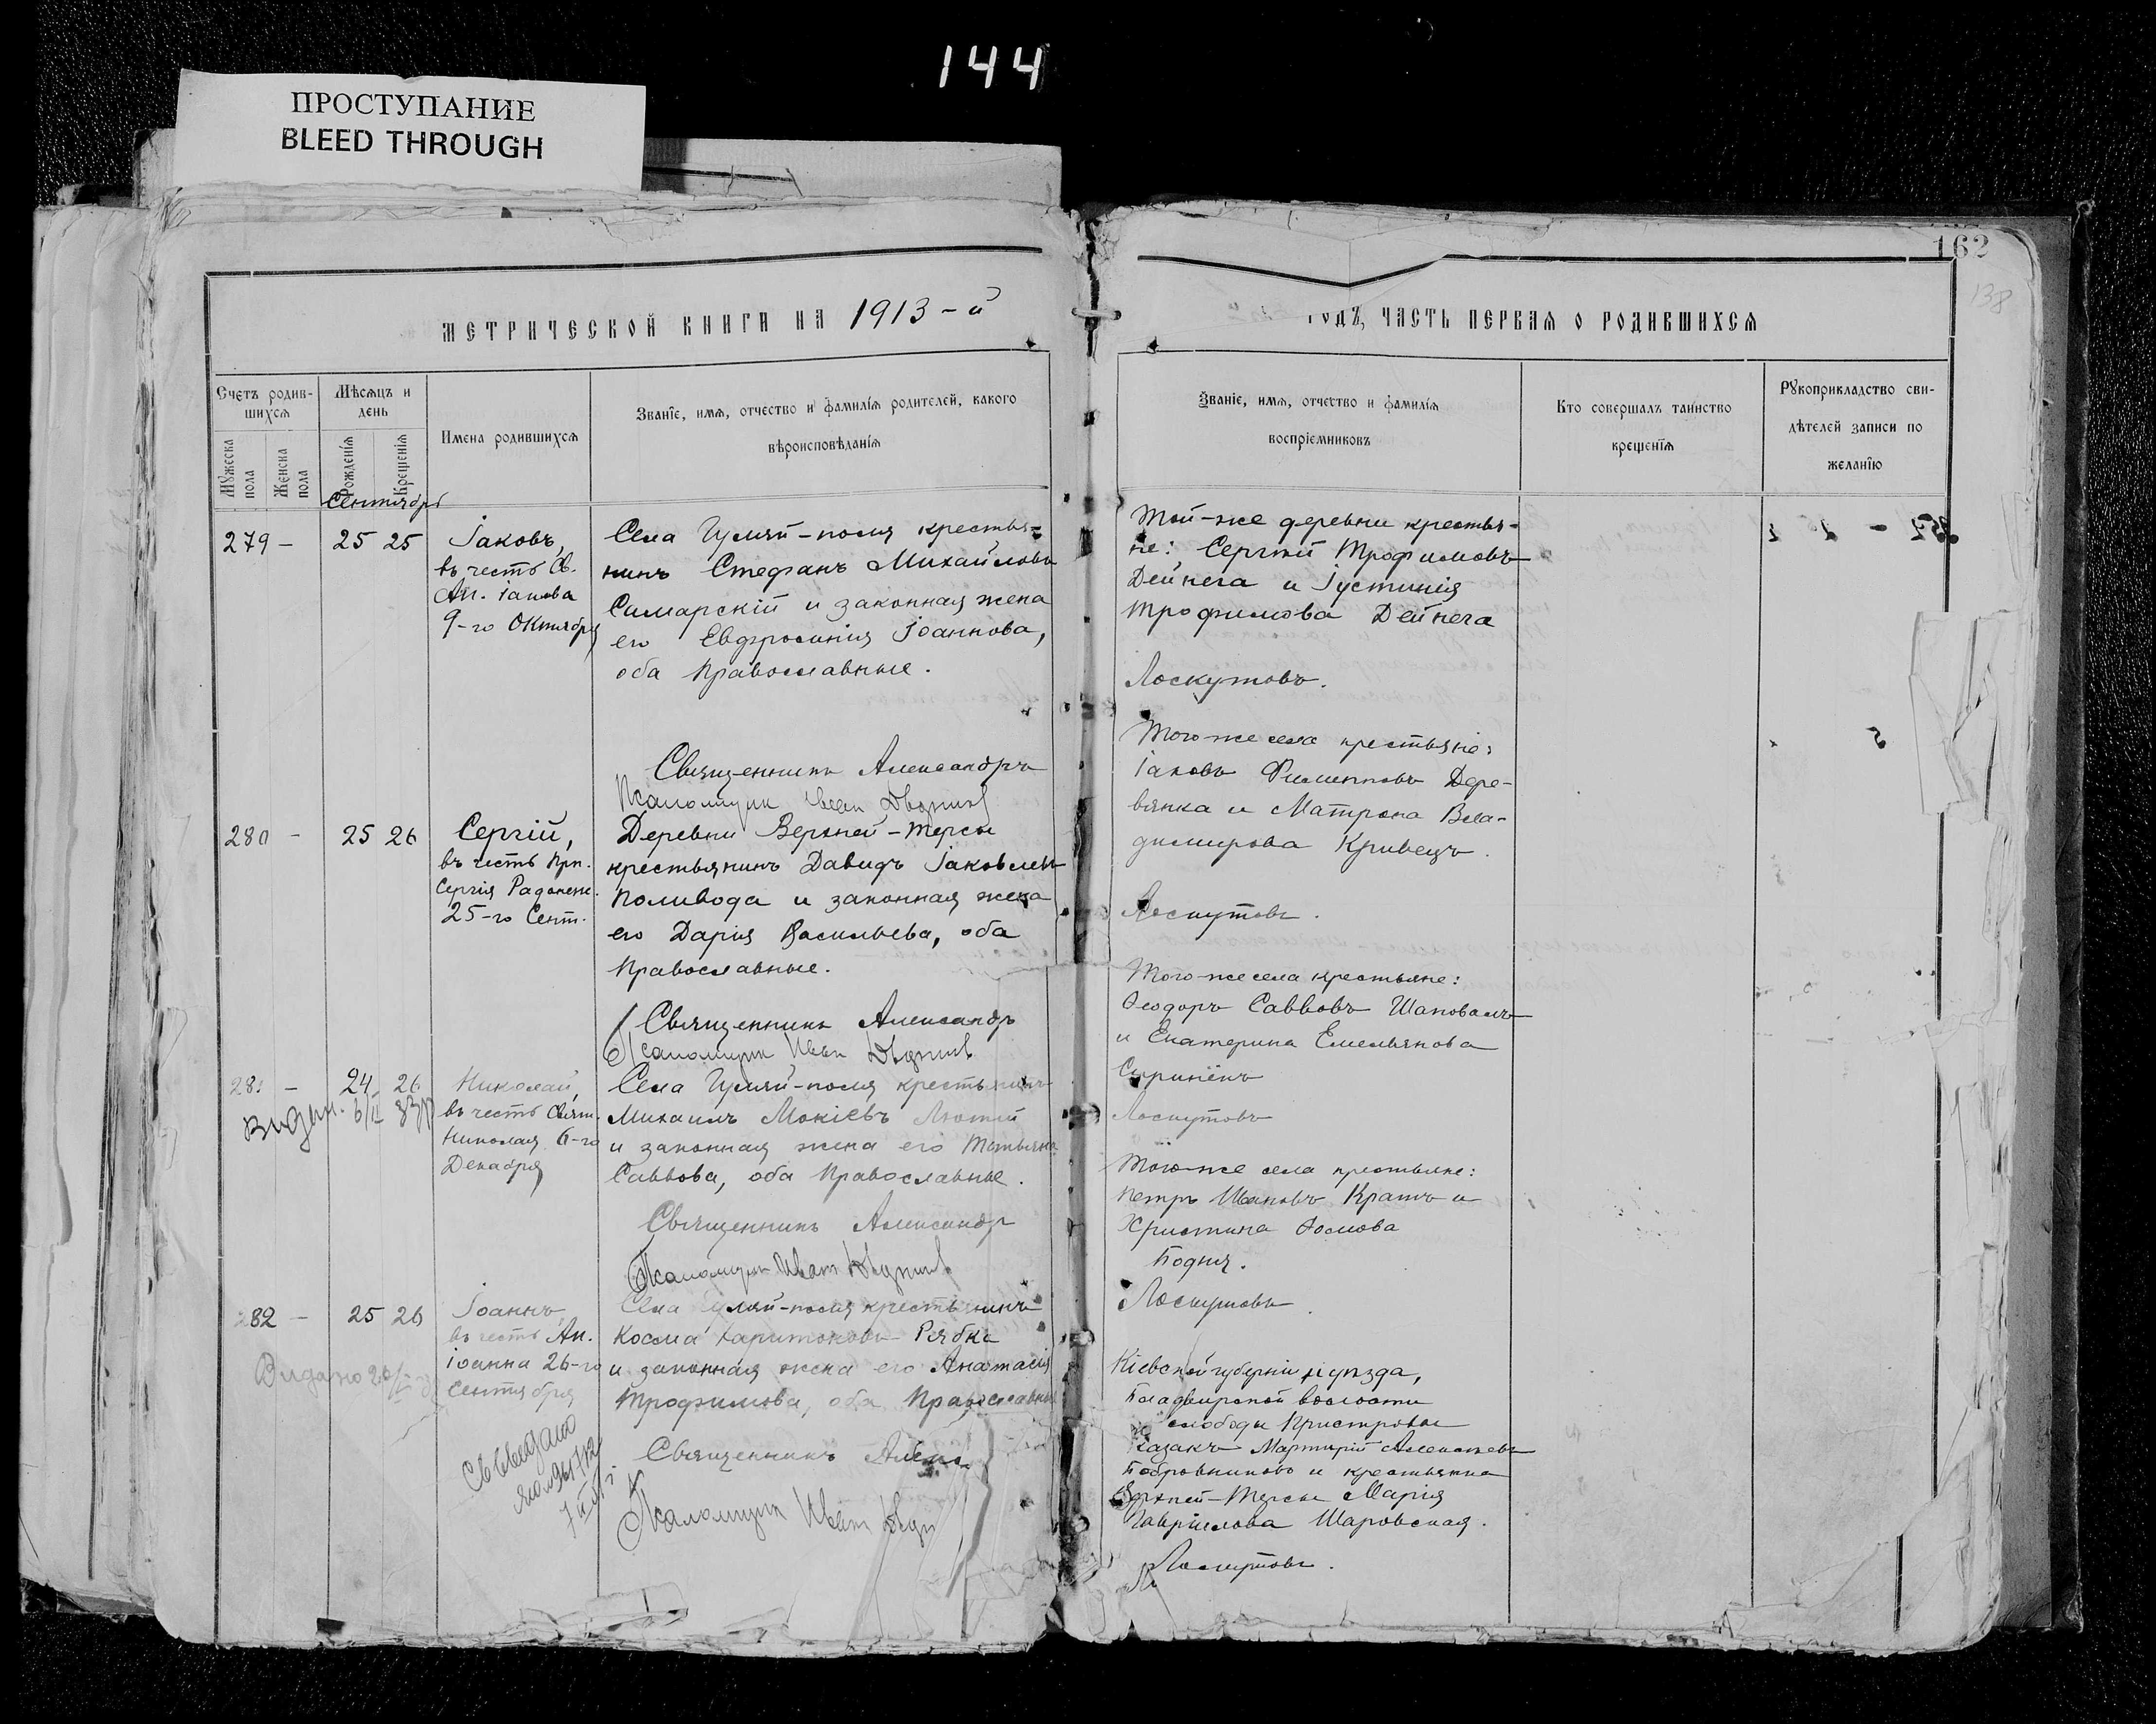 144
ПРОСТУПАНИЕ
BLEED THROUGH
162
138
МЕТРИЧЕСКОЙ КНИГИ НА 1913-й
ГОДЪ, ЧАСТЬ ПЕРВАЯ О РОДИВШИХСЯ
Счетъ родив-
шихся
Мѣсяцъ и
день
Имена родившихся
Званіе, имя, отчество и фамилія родителей, какого
вѣроисповѣданія
Мужеска
пола
Женска
пола
Рожденія
Крещенія
Званіе, имя, отчество и фамилія
воспріемниковъ
Кто совершалъ таинство
крещенія
Рукоприкладство сви-
дѣтелей записи по
желанію
Сентябрь
279 - 25 25
Іаковъ,
въ честь Св.
Ап. Іакова
9-го Октября
Села Гуляй-поля крестья=
нинъ Стефанъ Михайловъ
Самарскій и законная жена
его Евфросинія Іоаннова,
оба Православные.
Священникъ Александръ
Псаломщик Иван
280 - 25 26
Сергій,
въ честь Прп.
Сергія Радонеж.
25-го Сент.
Деревни Верхней-Терсы
крестьянинъ Давидъ Іаковлевъ
Поливода и законная жена
его Дарія Васильева, оба
Православные.
Священникъ Александръ
Псаломщик Иван
281 - 24 26
Видан. 6/II
Николай,
въ честь Свят.
Николая 6-го
Декабря
Села Гуляй-поля крестьянинъ
Михаилъ Мокіевъ Лютий
и законная жена его Татьяна
Саввова, оба Православные.
Священникъ Александр
Псаломщик Иван
282 - 25 26
Видано
Іоаннъ,
въ честь Ап.
Іоанна 26-го
Сентября
Села Гуляй-поля крестьянинъ
Косма Харитоновъ Рябка
и законная жена его Анастасія
Трофимова, оба Православные
Священникъ Алекс
Псаломщик Иван
Той-же деревни крестья-
не: Сергій Трофимовъ
Дейнега и Іустинія
Трофимова Дейнега
Лоскутовъ.
Того-же села крестьяне:
Іаковъ Филипповъ Дере-
вянка и Матрона Вла-
димирова Кривецъ.
Лоскутовъ.
Того-же села крестьяне:
Ѳеодоръ Савовъ Шаповалъ
и Екатерина Емельянова
Лоскутовъ
Того-же села крестьяне:
Петръ Ивановъ Кратъ и
Христина Ѳомова
Бодня.
Лоскутовъ.
Кіевской губерніи и уѣзда,
волости
слободы
казакъ Мартирій Алексѣевъ
Бобровниковъ и крестьянка
Верхней-Терсы Марія
Гавріилова Шаровская.
Лоскутовъ.